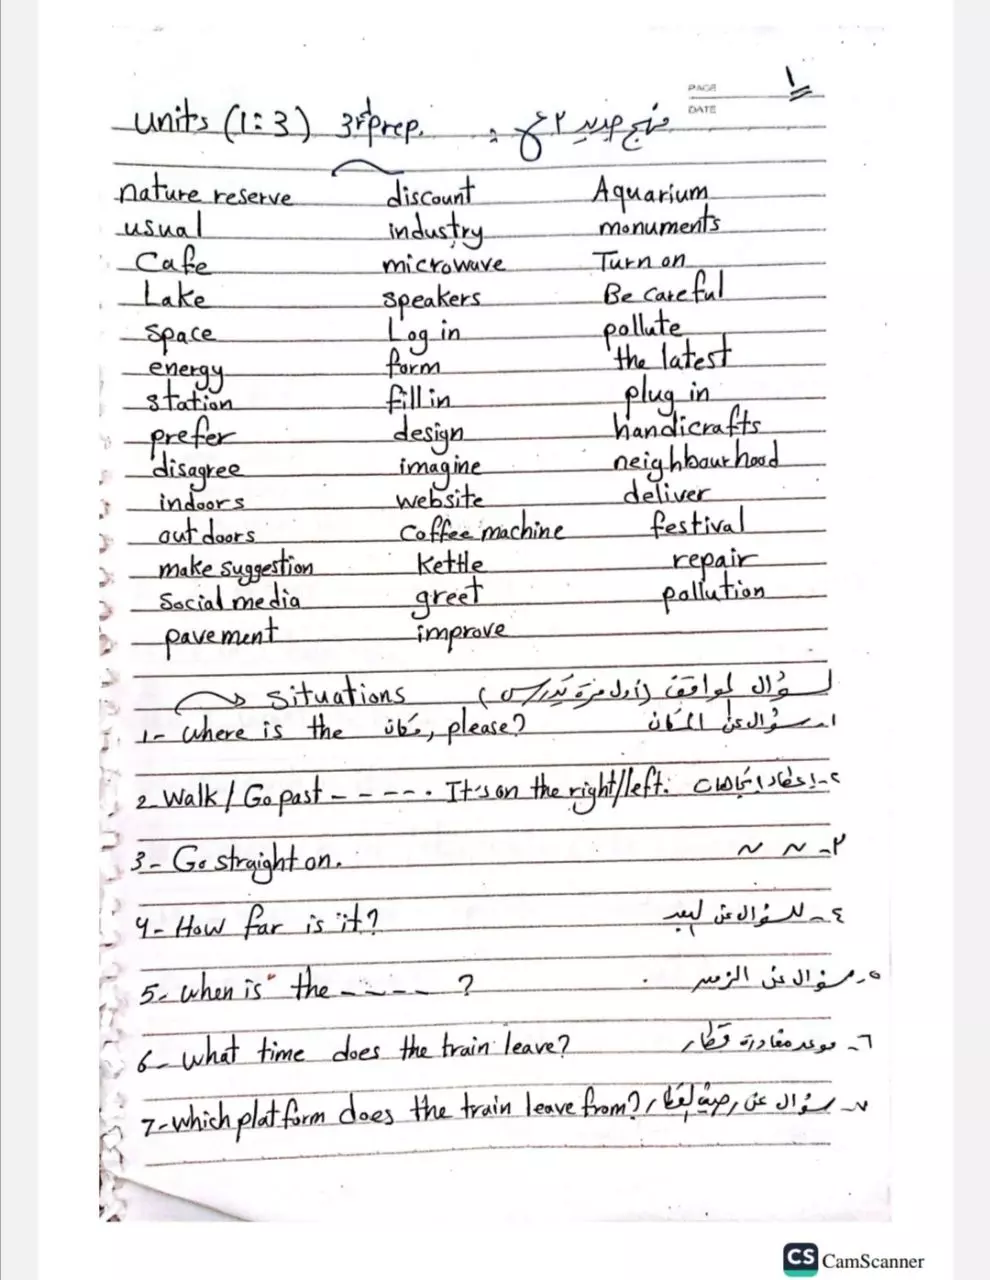 PAGE ١
DATE
units (1:3) 3rd prep. منهج جديد ٢ع
nature reserve discount Aquarium
usual industry monuments
Cafe microwave Turn on
Lake speakers Be careful
space Log in pollute
energy form the latest
station fill in plug in
prefer design handicrafts
disagree imagine neighbourhood
indoors website deliver
outdoors Coffee machine festival
make suggestion kettle repair
Social media greet pollution
pavement improve
Situations لسؤال المواقف (أول مرة يُدرس)
1- where is the مكان, please? ١- سؤال عن المكان
2- Walk / Go past - - - - -. It's on the right/left. ٢- إعطاء اتجاهات
3- Go straight on. ٣- ~ ~
4- How far is it? ٤- للسؤال عن البعد
5- when is the - - - - - ? ٥- سؤال عن الزمن
6- what time does the train leave? ٦- موعد مغادرة قطار
7- which platform does the train leave from? ٧- سؤال عن رصيف القطار
CS CamScanner